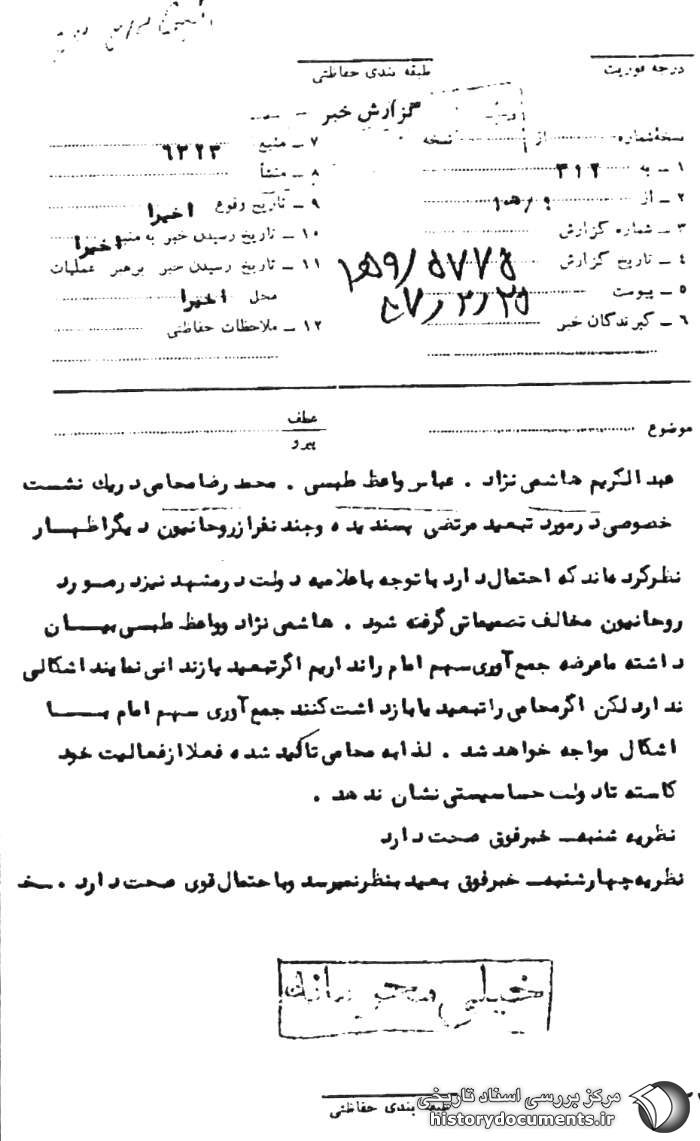 درجه فوریت
طبقه بندی حفاظتی
گزارش خبر
نسخهٔ شماره از نسخه
۱ ــ به ۳۱۲
۲ ــ از
۳ ــ شماره گزارش ۱۵۹/۵۷۷۵
۴ ــ تاریخ گزارش ۵۷٫۲٫۲۵
۵ ــ پیوست
۶ ــ گیرندگان خبر
۷ ــ منبع ۶۲۲۳
۸ ــ منشأ
۹ ــ تاریخ وقوع اخیرا
۱۰ ــ تاریخ رسیدن خبر به منبع اخیرا
۱۱ ــ تاریخ رسیدن خبر برهبر عملیات
محل اخیرا
۱۲ ــ ملاحظات حفاظتی
موضوع
عطف
پیرو
عبدالکریم هاشمی نژاد . عباس واعظ طبسی . محمد رضا محامی دریک نشست
خصوصی درمورد تبعید مرتضی پسندیده وچند نفرازروحانیون دیگراظهار
نظرکرده‌اند که احتمال دارد با توجه باعلامیه دولت درمشهد نیزدرمورد
روحانیون مخالف تصمیماتی گرفته شود . هاشمی نژاد وواعظ طبسی بیان
داشته ماعرضه جمع آوری سهم امام رانداریم اگرتبعید یازندانی نمایند اشکالی
ندارد لکن اگرمحامی راتبعید یابازداشت کنند جمع آوری سهم امام با
اشکال مواجه خواهد شد . لذا به محامی تاکید شده فعلا ازفعالیت خود
کاسته تادولت حساسیتی نشان ندهد .
نظریه شنبهــ خبرفوق صحت دارد
نظریه چهارشنبهــ خبرفوق بعید بنظرنمیرسد وبا احتمال قوی صحت دارد .
خیلی محرمانه
طبقه بندی حفاظتی
مرکز بررسی اسناد تاریخی
historydocuments.ir